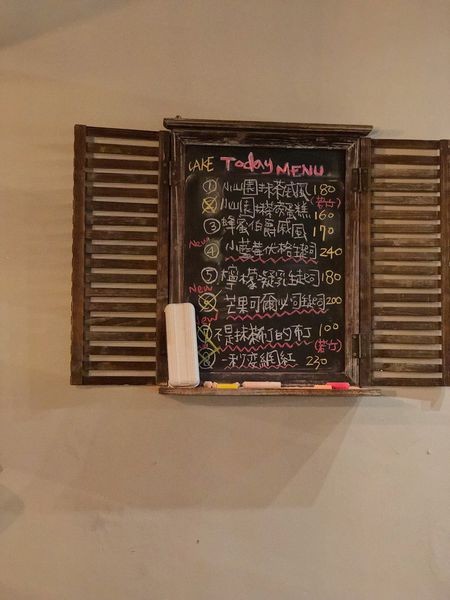 CAKE Today MENU
① 小山園抹茶戚風 180
② 小山園抹茶蛋糕 (老竹) 160
③ 蜂蜜伯爵戚風 170
New ④ 小藍莓優格起司 240
⑤ 檸檬凝乳生起司 180
New ⑥ 芒果可爾必思起司 200
New ⑦ 不是抹茶布丁的布丁 100
⑧ 一秒變網紅 230